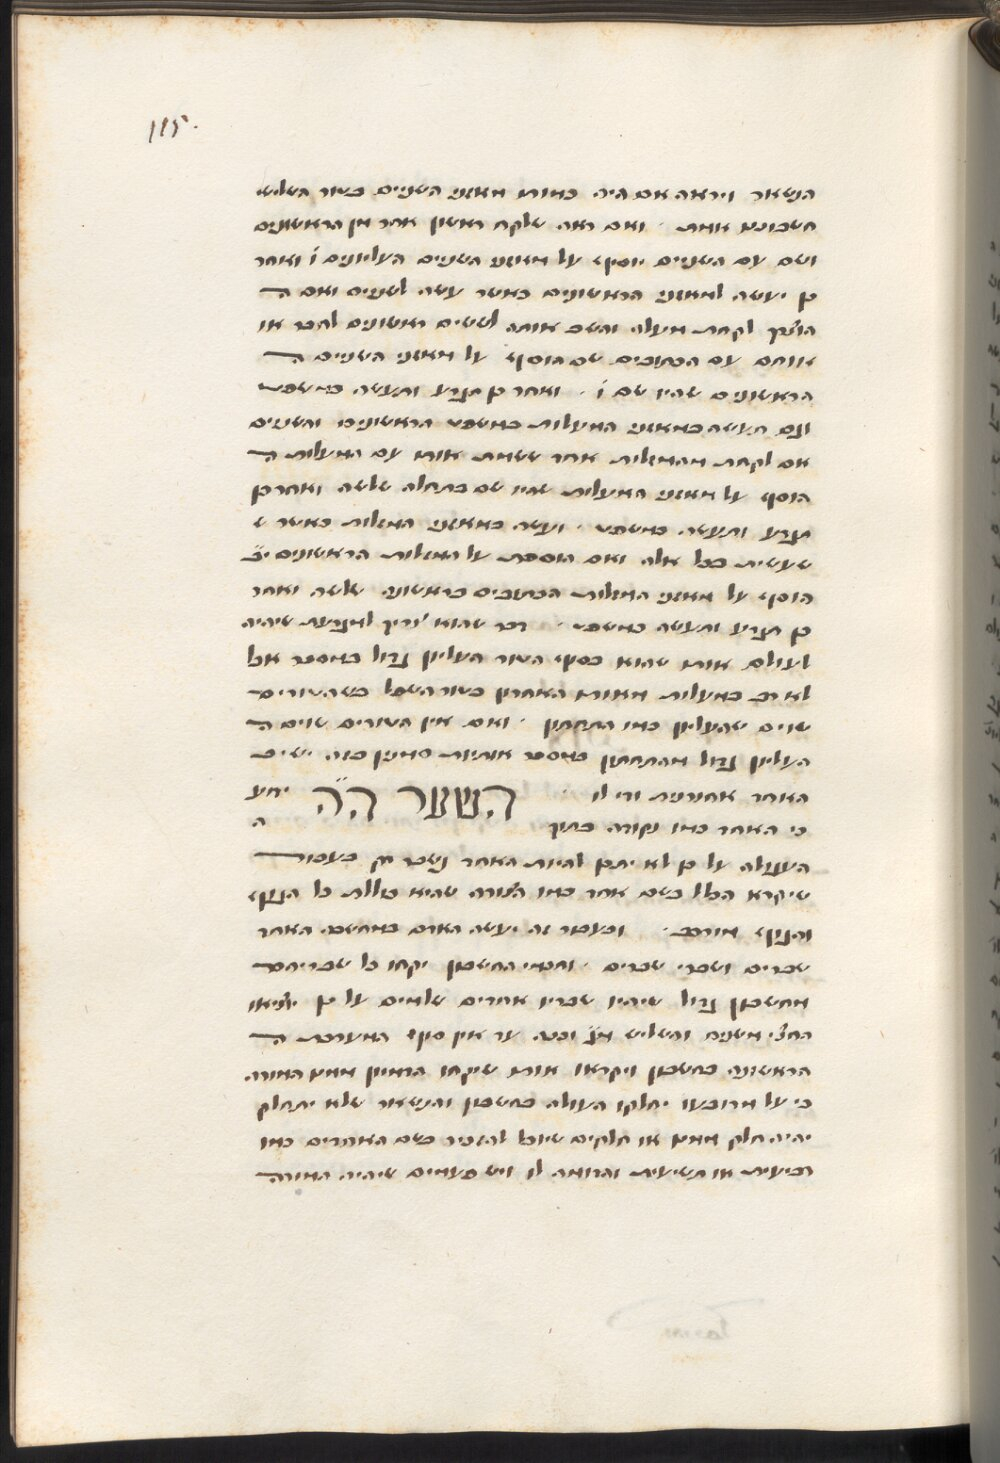 115.
הנשאר ויראה אם היה כמות מאזני השניים בטור השליש
חשבונם אמת · ואם ראה שלקח ראשון אחר מן הראשונים
ושם עם השניים יוסיף על מאזני השניים העליונים ו̇ ואחר
כן יעשה למאזני הראשונים כאשר עשה לשניים ואם ה
הוצרך לקחת מעלה והשב אותה לששים ראשונים לחבר או
אותם עם הכתובים שם הוסיף על מאזני השניים ה
הראשונים שהיו שם ו̇ · ואחר כן תגרע ותעשה כמשפט
וגם תעשה במאזני המעלות כמשפט הראשונים והשניים
אם לקחת מהמזלות אחד ששמת אותו עם המעלות ה
הוסף על מאזני המעלות שהיו שם בתחלה שלשה ואחר כן
תגרע ותעשה כמשפט · ועשה במאזני המזלות כאשר ע
שעשית בכל אלה ואם הוספת על המזלות הראשונים י״ב
הוסף על מאזני המזלות הכתובים בראשונה שלשה ואחר
כן תגרע ותעשה כמשפט · דבר שהוא צריך למגרעת שיהיה
לעולם אותו שהוא בסוף הטור העליון גדול במספר אבל
לא רב במעלות מאות האחרון בטור השפל כשהטורים
שוים שהעליון כמו התחתון · ואם אין הטורים שוים ה
העליון גדול מהתחתון במספר אותיות סימנין בזה ישיב
האחד אחורנית ודי לו · השער הה״ ידוע
כי האחד כמו נקודה בתוך ה
העגולה על כן לא יתכן להיות האחד נשבר רק בעבור
שיקרא הכלל בשם אחד כמו הצורה שהיא כוללת כל הגוף
והגוף מורכב · ובעבור זה יעשה האדם במחשבה האחד
שברים ושברי שברים · וחכמי החשבון יקחו כל שבריהם
מחשבון גדול שיהיו שבריו אחדים שלמים על כן יוציאו
החצי משנים והשליש מג̇ וככה עד אין סוף המערכת ה
הראשונה בחשבון ויקראו אותו שיקחו הדמיון ממנו המורה
כי על מרובעו יחלקו העולה בחשבון והנשאר שלא יתחלק
יהיה חלק ממנו או חלקים שיוכל להזכיר בשם האחדים כמו
רביעית או תשיעית והדומה לו ויש פעמים שיהיה המורה